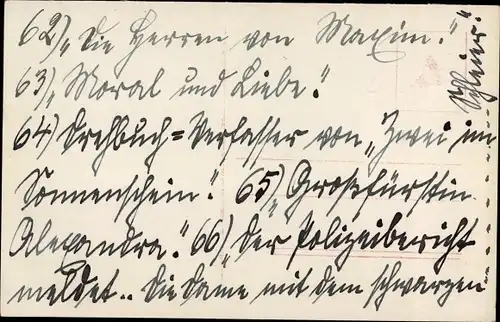 62) „Die Herren von Maxim."
63) „Moral und Liebe."
64) Drehbuch=Verfasser von „Zwei im
Sonnenschein." 65) „Großfürstin
Alexandra." 66) „Der Polizeibericht
meldet.. Die Dame mit dem schwarzen
Schleier."